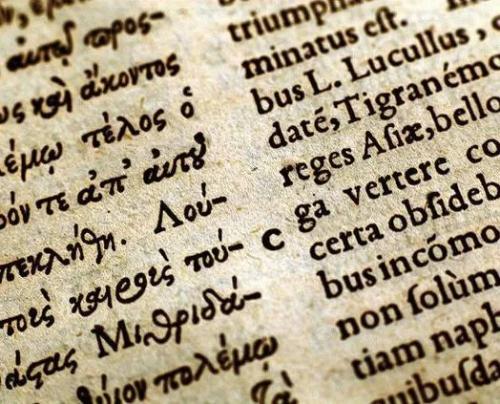 αὐτῷ προσ-
ως καὶ ἄκοντος
λέμῳ τέλος ὁ
όν τε ἀπ' αὐτοῦ
πεκλήθη. Λού-
τού-
Μιθριδά-
πολέμῳ
triumpha
minatus eſt.
bus L. Lucullus,
datē,Tigranémo
reges Aſiæ,bello
c ga vertere co
certa obſideb
bus incõmo
non ſolùm
tiam naph
quibuſda